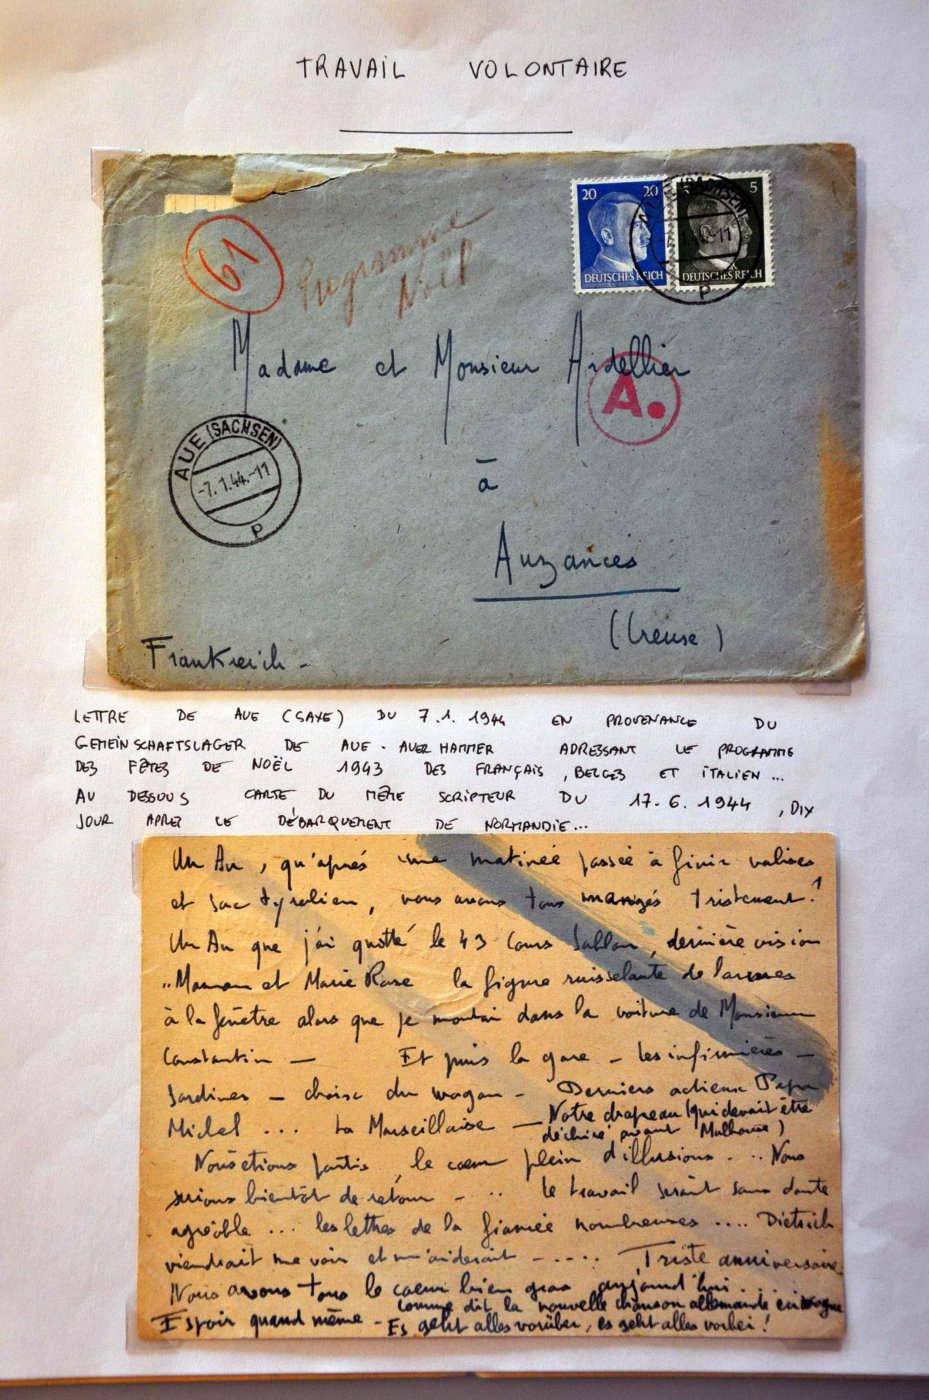 TRAVAIL VOLONTAIRE
20 20
5 5
DEUTSCHES REICH
DEUTSCHES REICH
61
Programme
Noël
Madame et Monsieur Ardellier
A.
AUE (SACHSEN)
-7.1.44.-11
P
à
Auzances
(Creuse)
Frankreich -
LETTRE DE AUE (SAXE) DU 7.1.1944 EN PROVENANCE DU
GEMEINSCHAFTSLAGER DE AUE-AUERHAMMER ADRESSANT LE PROGRAMME
DES FÊTES DE NOËL 1943 DES FRANÇAIS, BELGES ET ITALIEN...
AU DESSOUS CARTE DU MÊME SCRIPTEUR DU 17-6.1944, DIX
JOUR APRES LE DÉBARQUEMENT DE NORMANDIE...
Un An, qu'après une matinée passée à finir valises
et sac tyrolien, nous avons tous mangés tristement!
Un An que j'ai quitté le 43 Cours Sablon, dernière vision
"Maman et Marie Rose la figure ruisselante de larmes
à la fenêtre alors que je montai dans la voiture de Monsieur
Constantin — Et puis la gare - les infirmières -
Sardines - choix du wagon - Derniers adieux Papa
Michel ... La Marseillaise - Notre drapeau (qui devait être
déchiré avant Mulhouse)
Nous étions partis, le cœur plein d'illusions ... Nous
serions bientôt de retour - .. le travail serait sans doute
agréable ... les lettres de la fiancée nombreuses .... Dietrich
viendrait me voir et m'aiderait - .... Triste anniversaire
Nous avons tous le cœur bien gros aujourd'hui ...
comme dit la nouvelle chanson allemande en vogue
Espoir quand même - Es geht alles vorüber, es geht alles vorbei!